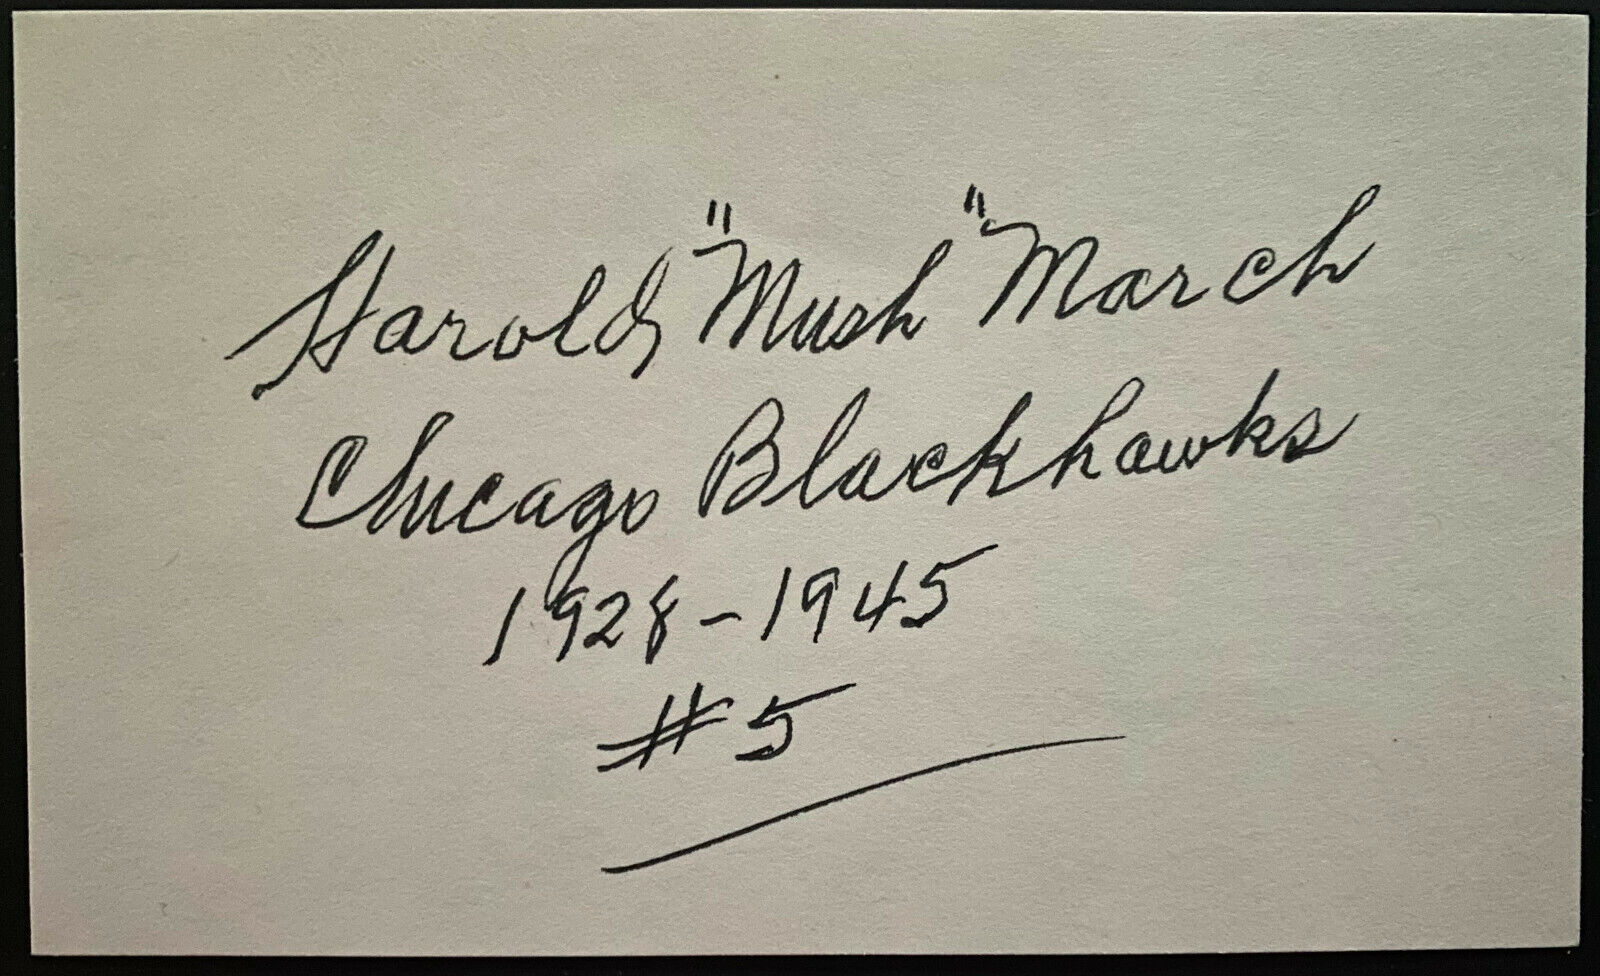 Harold "Mush" March
Chicago Blackhawks
1928-1945
#5